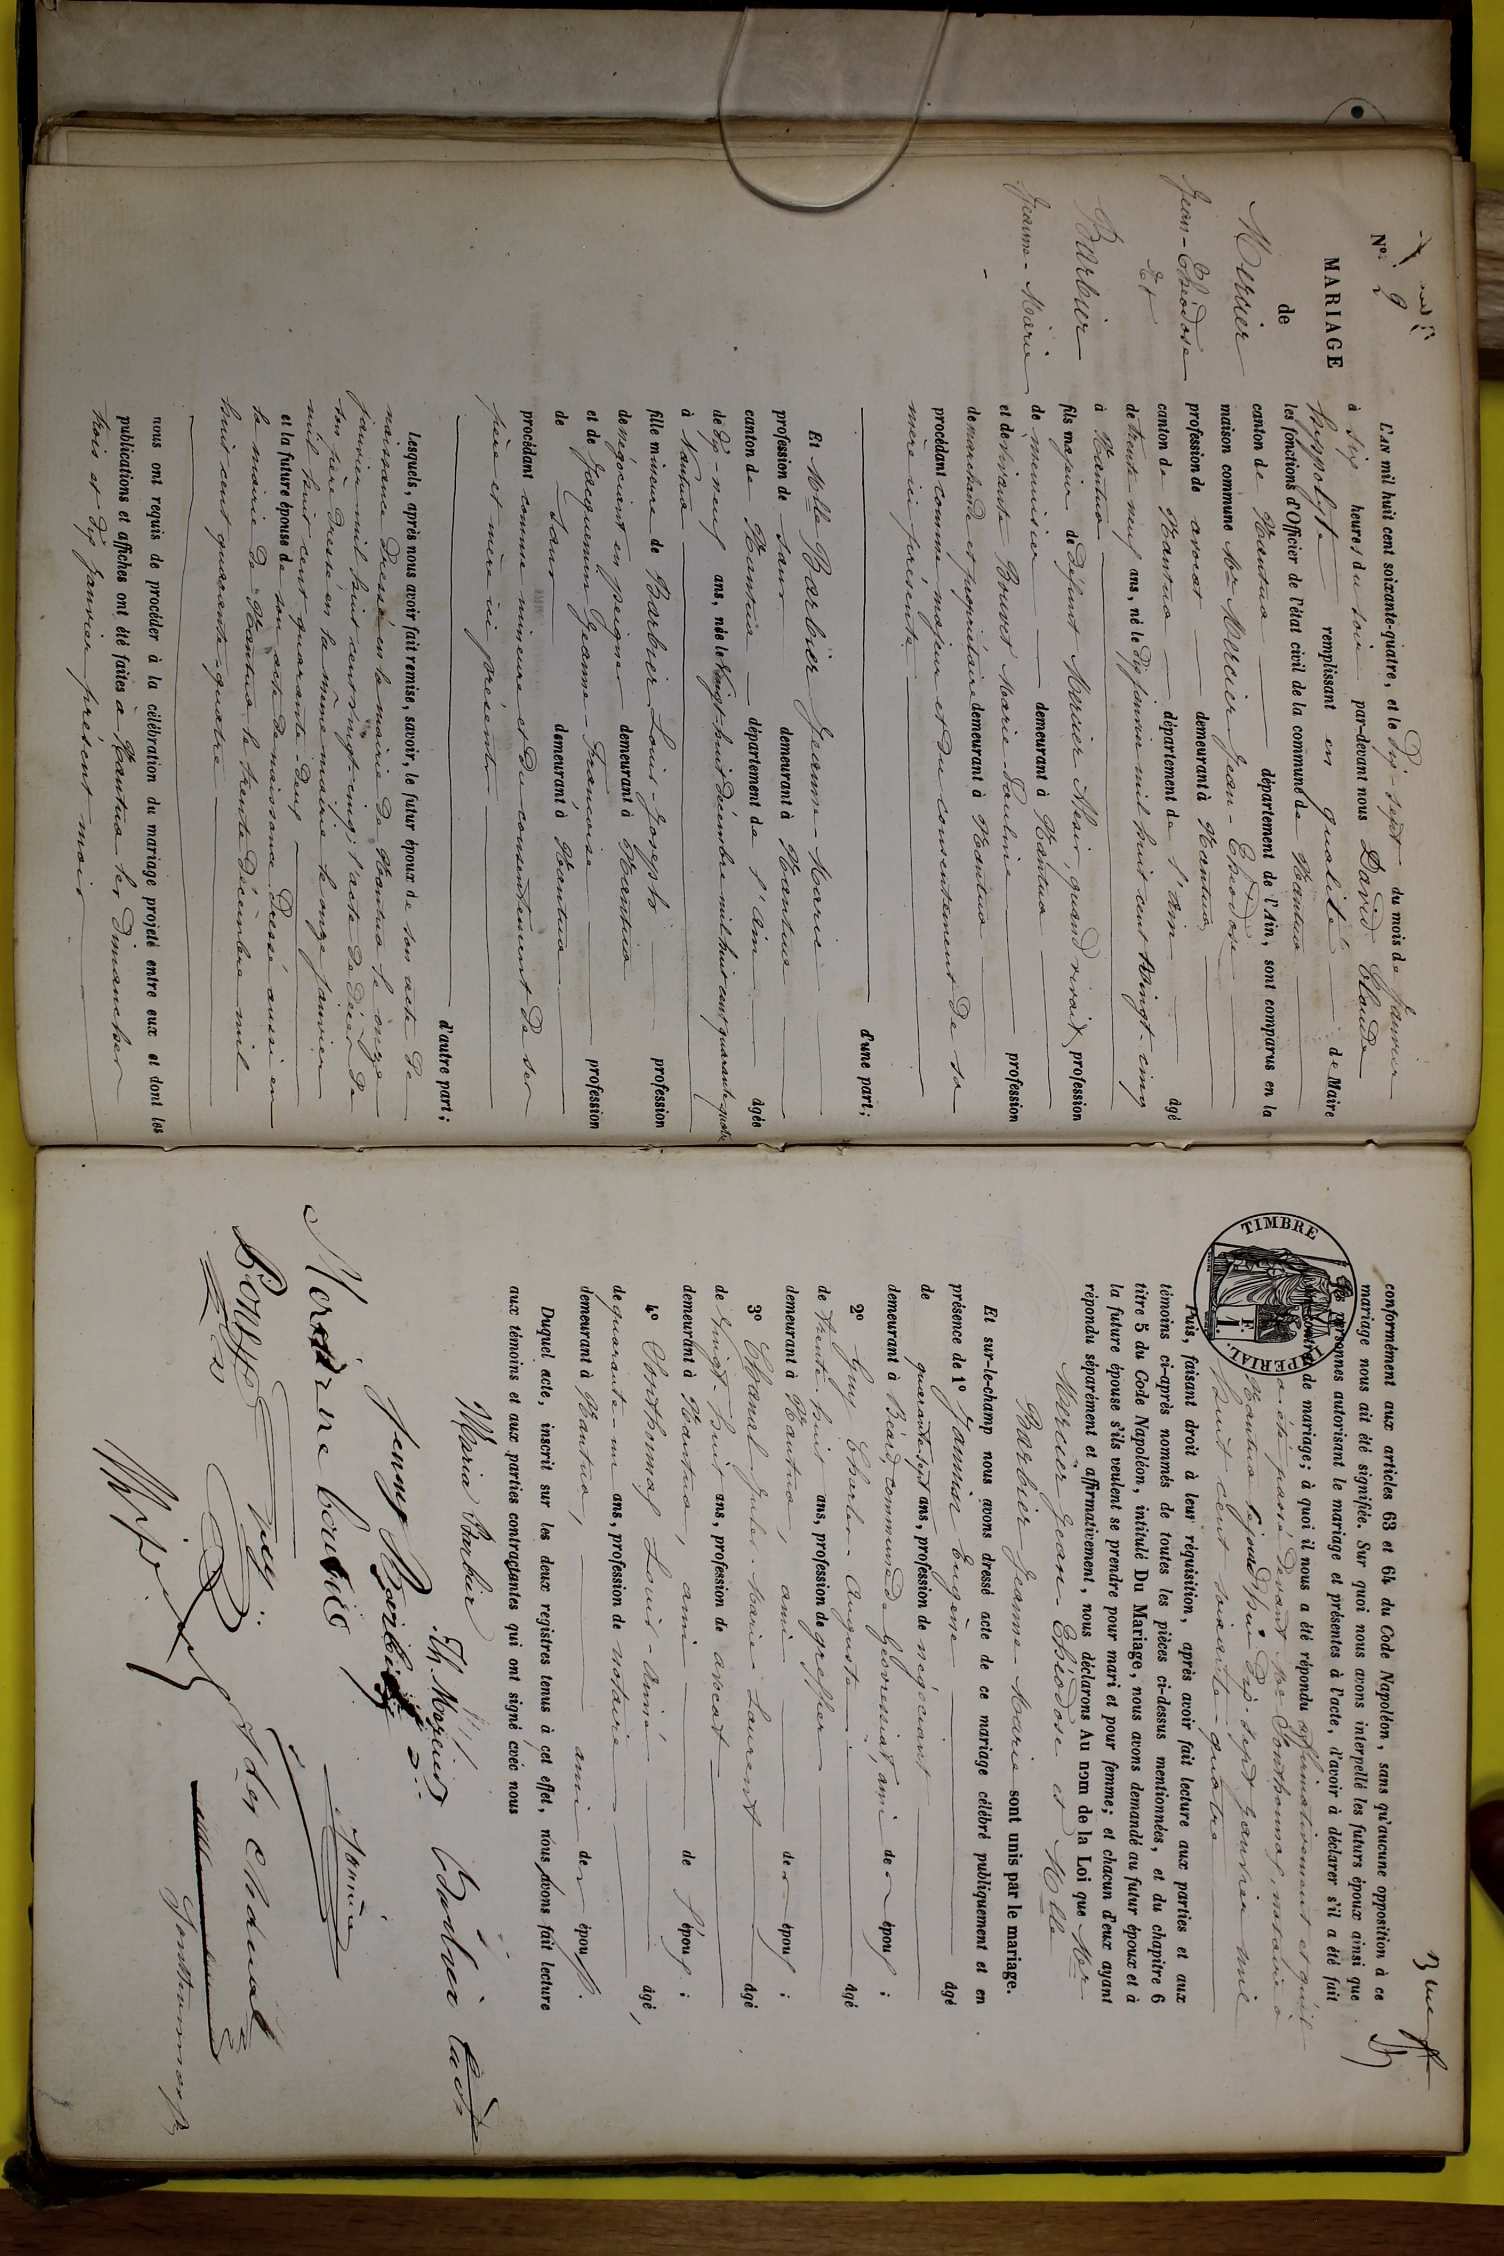 N° 2
MARIAGE
de
Mercier
Jean-Théodose
et
Barbier
Jeanne-Marie
L'AN mil huit cent soixante-quatre, et le dix-sept du mois de Janvier
à dix heures du soir par-devant nous David Claude
hippolyte remplissant en qualité de Maire
les fonctions d'Officier de l'état civil de la commune de Nantua
canton de Nantua département de l'Ain, sont comparus en la
maison commune Mr Mercier Jean-Théodose
profession de avocat demeurant à Nantua,
canton de Nantua département de l'ain âgé
de trente neuf ans, né le dix janvier mil huit cent vingt-cinq
à Nantua
fils majeur de défunt Mercier Aléxis, quand vivait profession
de menuisier demeurant à Nantua
et de vivante Bouvet Marie-Pauline profession
de marchande et propriétaire demeurant à Nantua
procédant comme majeur et du consentement de sa
mère ici présente
d'une part;
Et Mlle Barbier Jeanne-Marie
profession de sans demeurant à Nantua
canton de Nantua département de l'Ain âgée
de dix-neuf ans, née le vingt-huit décembre mil huit cent quarante-quatre
à Nantua
fille mineure de Barbier Louis-Joseph profession
de négociant en peignes demeurant à Nantua
et de Jacquemin Jeanne-Francoise profession
de sans demeurant à Nantua
procédant comme mineure et du consentement de ses
père et mère ici présents
d'autre part;
Lesquels, après nous avoir fait remise, savoir, le futur époux de son acte de
naissance dressé en la mairie de Nantua le onze
janvier mil huit cent vingt-cinq; l'acte de décès de
son père dressé en la même mairie le onze janvier
mil huit cent quarante-deux
et la future épouse de son acte de naissance dressé aussi en
la mairie de Nantua le trente décembre mil
huit cent quarante-quatre
nous ont requis de procéder à la célébration du mariage projeté entre eux et dont les
publications et affiches ont été faites à Nantua les dimanches
trois et dix janvier présent mois
conformément aux articles 63 et 64 du Code Napoléon, sans qu'aucune opposition à ce
mariage nous ait été signifiée. Sur quoi nous avons interpellé les futurs époux ainsi que
les personnes autorisant le mariage et présentes à l'acte, d'avoir à déclarer s'il a été fait
un contrat de mariage; à quoi il nous a été répondu affirmativement et qu'il
a été passé devant Me Jonthomas, notaire à
Nantua le jourd'hui dix-sept janvier mil
huit cent soixante-quatre
TIMBRE IMPERIAL.
1 F.
Puis, faisant droit à leur réquisition, après avoir fait lecture aux parties et aux
témoins ci-après nommés de toutes les pièces ci-dessus mentionnées, et du chapitre 6
titre 5 du Code Napoléon, intitulé Du Mariage, nous avons demandé au futur époux et à
la future épouse s'ils veulent se prendre pour mari et pour femme; et chacun d'eux ayant
répondu séparément et affirmativement, nous déclarons Au nom de la Loi que Mr
Mercier Jean-Théodose et Mlle
Barbier Jeanne-Marie sont unis par le mariage.
Et sur-le-champ nous avons dressé acte de ce mariage célébré publiquement et en
présence de 1° Jannin Eugène âgé
de quarante sept ans, profession de négociant
demeurant à Béard, commune de Géovressiat, ami des époux;
2° Guy Charles Auguste âgé
de trente-huit ans, profession de greffier
demeurant à Nantua, ami des époux;
3° Chanal Jules-Marie Laurent âgé
de vingt-huit ans, profession de avocat
demeurant à Nantua, ami de l'époux;
4° Jonthomas Louis-Aimé âgé,
de quarante-un ans, profession de notaire
demeurant à Nantua, ami des époux.
Duquel acte, inscrit sur les deux registres tenus à cet effet, nous avons fait lecture
aux témoins et aux parties contractantes qui ont signé avec nous
Maria Barbier
Th. Mercier
Jenny Barbier
Guy
Jules Chanal